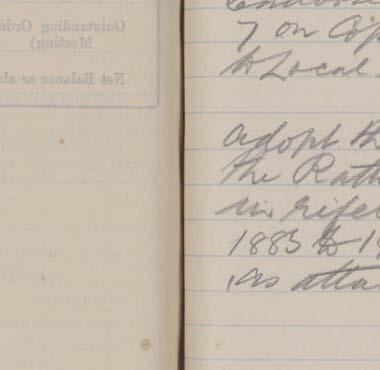 Outstanding Orde
Meeting)
Net Balance as ab
7 on Cop
to Local
adopt th
the Rath
in refe
1883 to 1
as atta